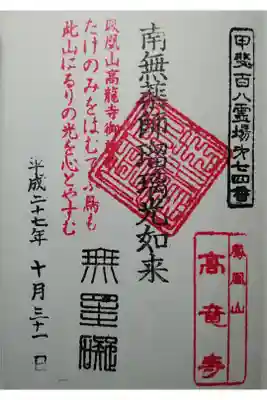 甲斐百八霊場第七四番
鳳凰山
高竜寺
南無薬師瑠璃光如来
無罣礙
鳳凰山高龍寺御詠歌
たけのみをはむてふ鳥も
此山にるりの光を心とやすむ
平成二十七年 十月三十一日